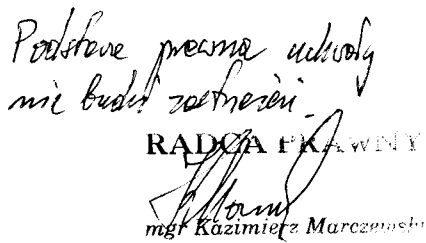 Podstawa prawna uchwały
nie budzi zastrzeżeń.
RADCA PRAWNY
mgr Kazimierz Marczewski